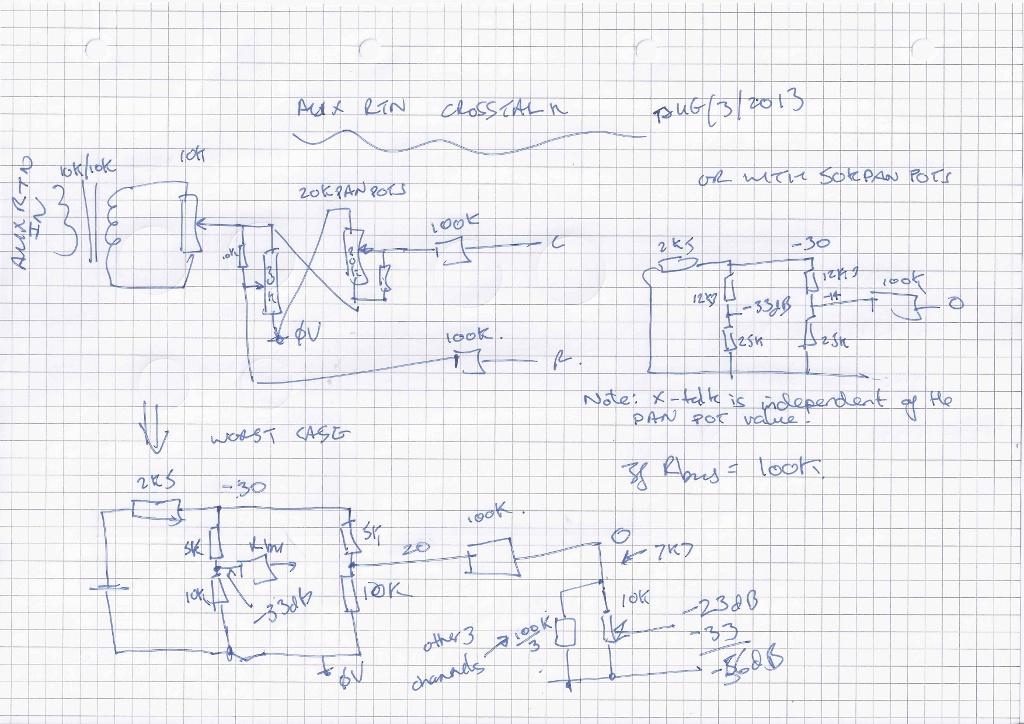 AUX RTN CROSSTALK AUG/3/2013
AUX RTN
IN
10K/10K
10K
20K PAN POTS
100K
L
0V
100K.
R.
OR WITH 50K PAN POTS
2K5
-30
12K5
-33dB
25K
12K5
25K
100K
0
Note: X-talk is independent of the
PAN POT value.
If Rbus = 100K.
WORST CASE
2K5
-30
5K
10K
-33dB
5K
10K
0V
20
100K.
0
7K7
10K
other 3
channels
100K
3
-23dB
-33
-56dB